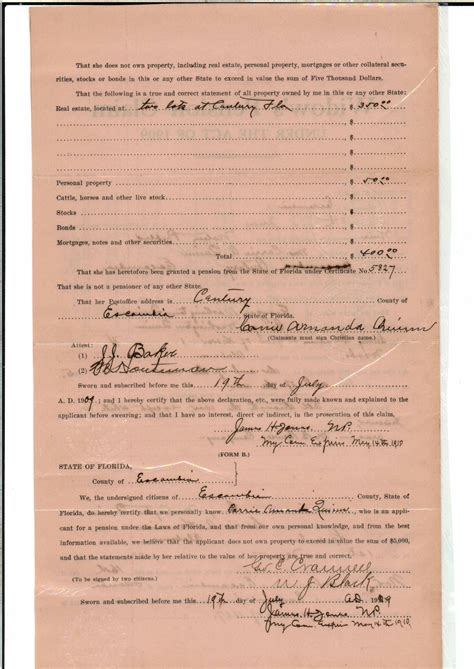 That she does not own property, including real estate, personal property, mortgages or other collateral secu-
rities, stocks or bonds in this or any other State to exceed in value the sum of Five Thousand Dollars.
That the following is a true and correct statement of all property owned by me in this or any other State:
Real estate, located at two lots at Century Fla $ 350.00
$
$
$
$
Personal property $ 50.00
Cattle, horses and other live stock $
Stocks $
Bonds $
Mortgages, notes and other securities $
Total $ 400.00
That she has heretofore been granted a pension from the State of Florida under Certificate No. 5327
That she is not a pensioner of any other State.
That her Postoffice address is Century County of
Escambia State of Florida.
Carrie Amanda Quinn
(Claimants must sign Christian name.)
Attest:
(1) J.J. Baker
(2)
Sworn and subscribed before me this 19th day of July
A. D. 1909; and I certify that the above declaration, etc., were fully made known and explained to the
applicant before swearing; and that I have no interest, direct or indirect, in the prosecution of this claim,
James H. Jones NP
My Com Expires May 14th 1910
(FORM B.)
STATE OF FLORIDA,
County of Escambia
We, the undersigned citizens of Escambia County, State of
Florida, do hereby certify that we personally know Carrie Amanda Quinn who is an appli-
cant for a pension under the Laws of Florida, and that from our own personal knowledge, and from the best
information available, we believe that the applicant does not own property to exceed in value the sum of $5,000,
and that the statements made by her relative to the value of her property are true and correct.
(To be signed by two citizens.)
W J Black
Sworn and subscribed before me this 19th day of July AD 1909
James H. Jones NP
My Com Expires May 14th 1910